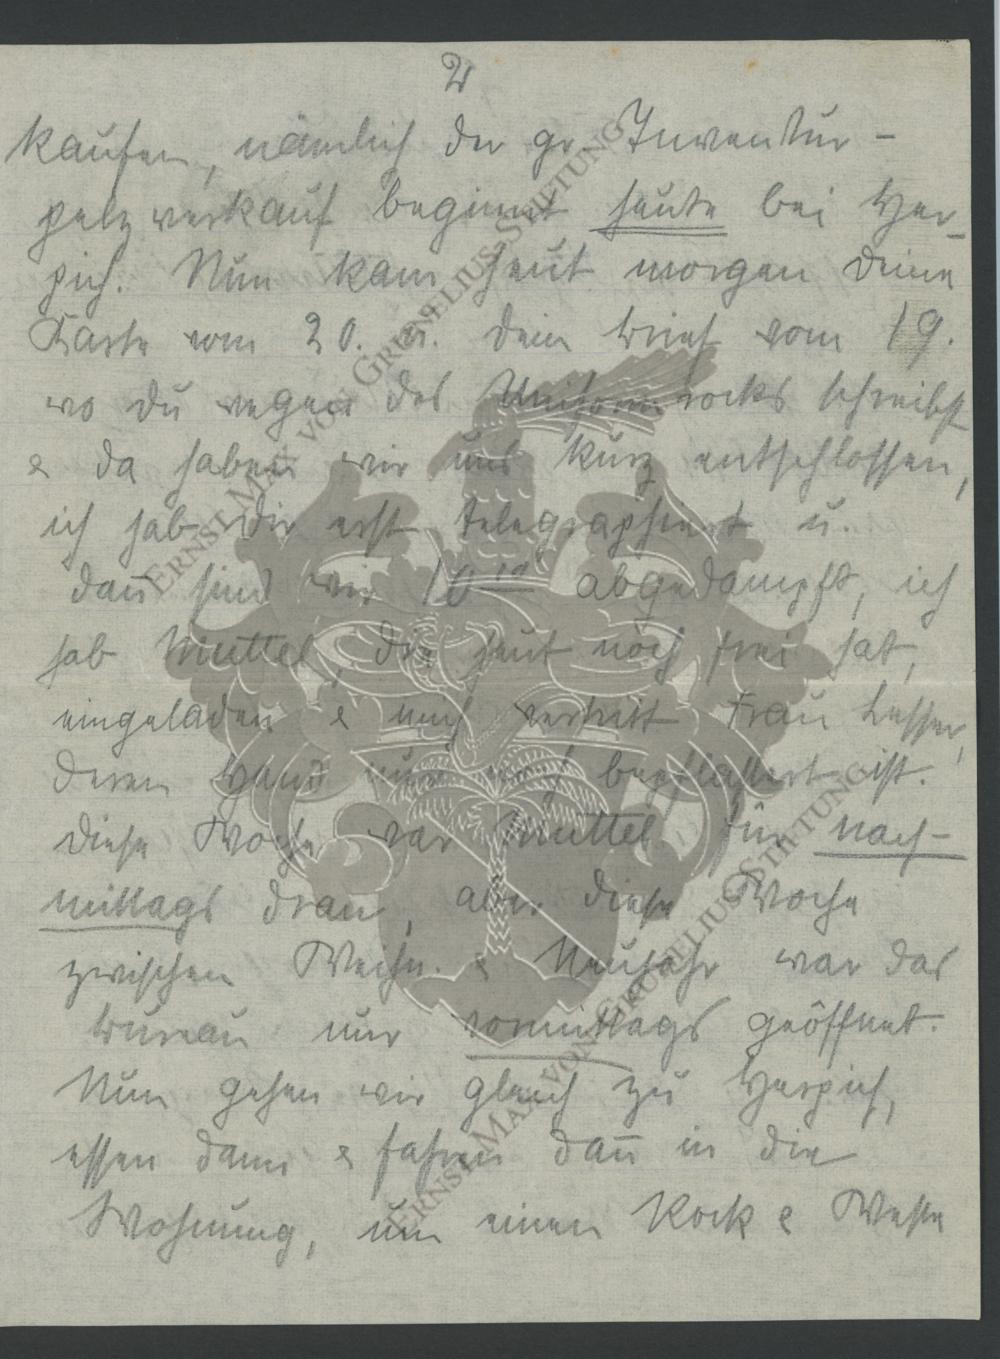 2
kaufen, nämlich der gr. Inventur-
pelzverkauf beginnt heute bei Her-
pich. Nun kam heut morgen deine
Karte vom 20. u. dein Brief vom 19.
wo du wegen des Uniformrocks schreibst
& da haben wir uns kurz entschlossen,
ich hab dir erst telegraphiert u.
dann sind wir 10 10 abgedampft, ich
hab Muttel, die heut noch frei hat,
eingeladen & mich vertritt Frau Lesser,
deren Hand nur noch bepflastert ist.
Diese Woche war Muttel für nach-
mittags dran, aber diese Woche
zwischen Weihn. & Neujahr war das
Bureau nur vormittags geöffnet.
Nun gehen wir gleich zu Herpich,
essen dann & fahren dann in die
Wohnung, um einen Rock & Weste
ERNST MAX VON GRUNELIUS STIFTUNG
ERNST MAX VON GRUNELIUS STIFTUNG